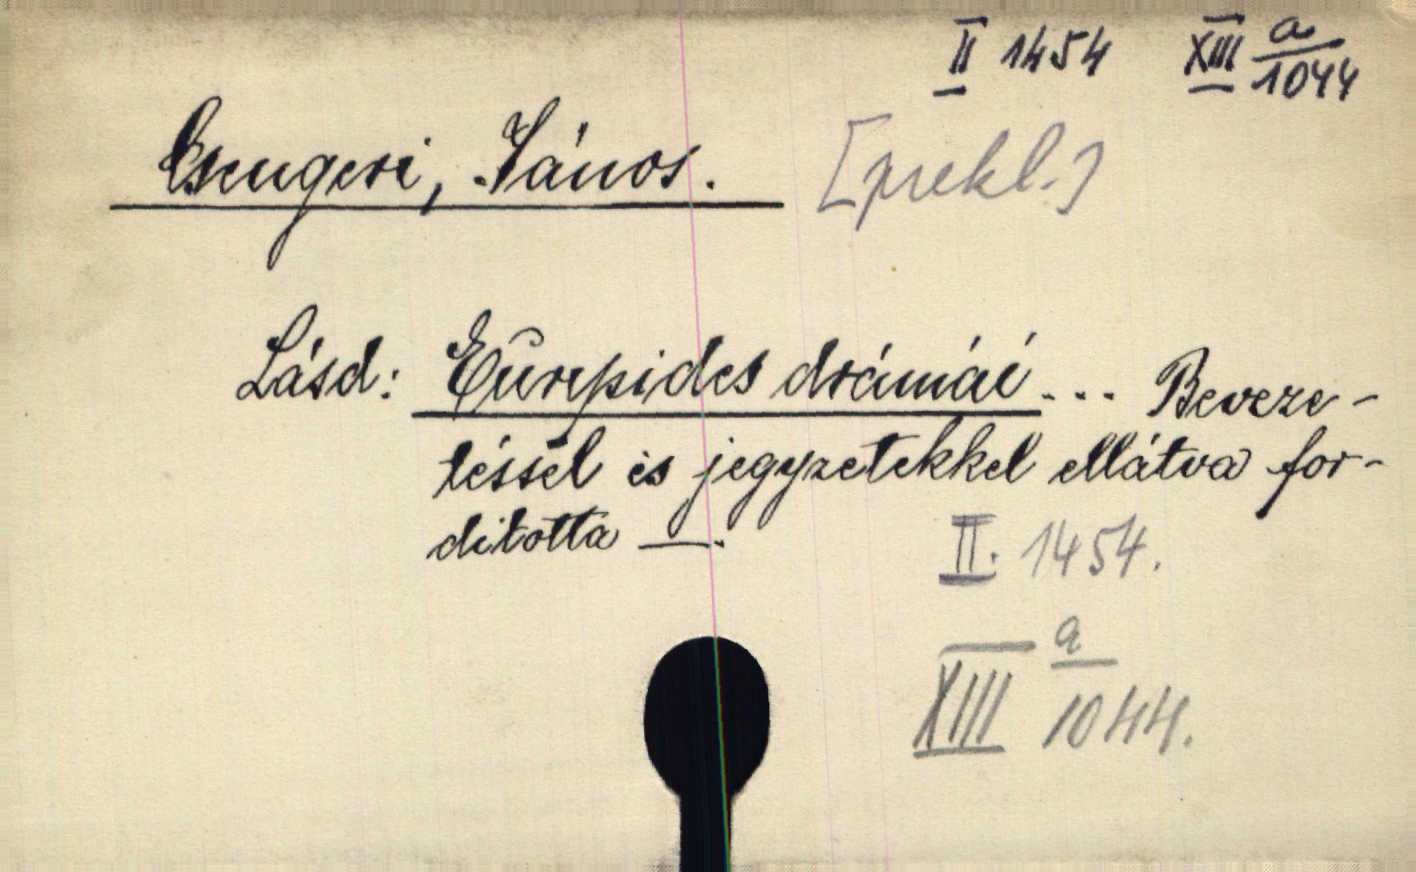 II 1454 XIII a/1044
Csengeri, János. [prekl.]
Lásd: Euripides drámái ... Beveze-
téssel és jegyzetekkel ellátva for-
dította —.
II. 1454.
XIII a/1044.